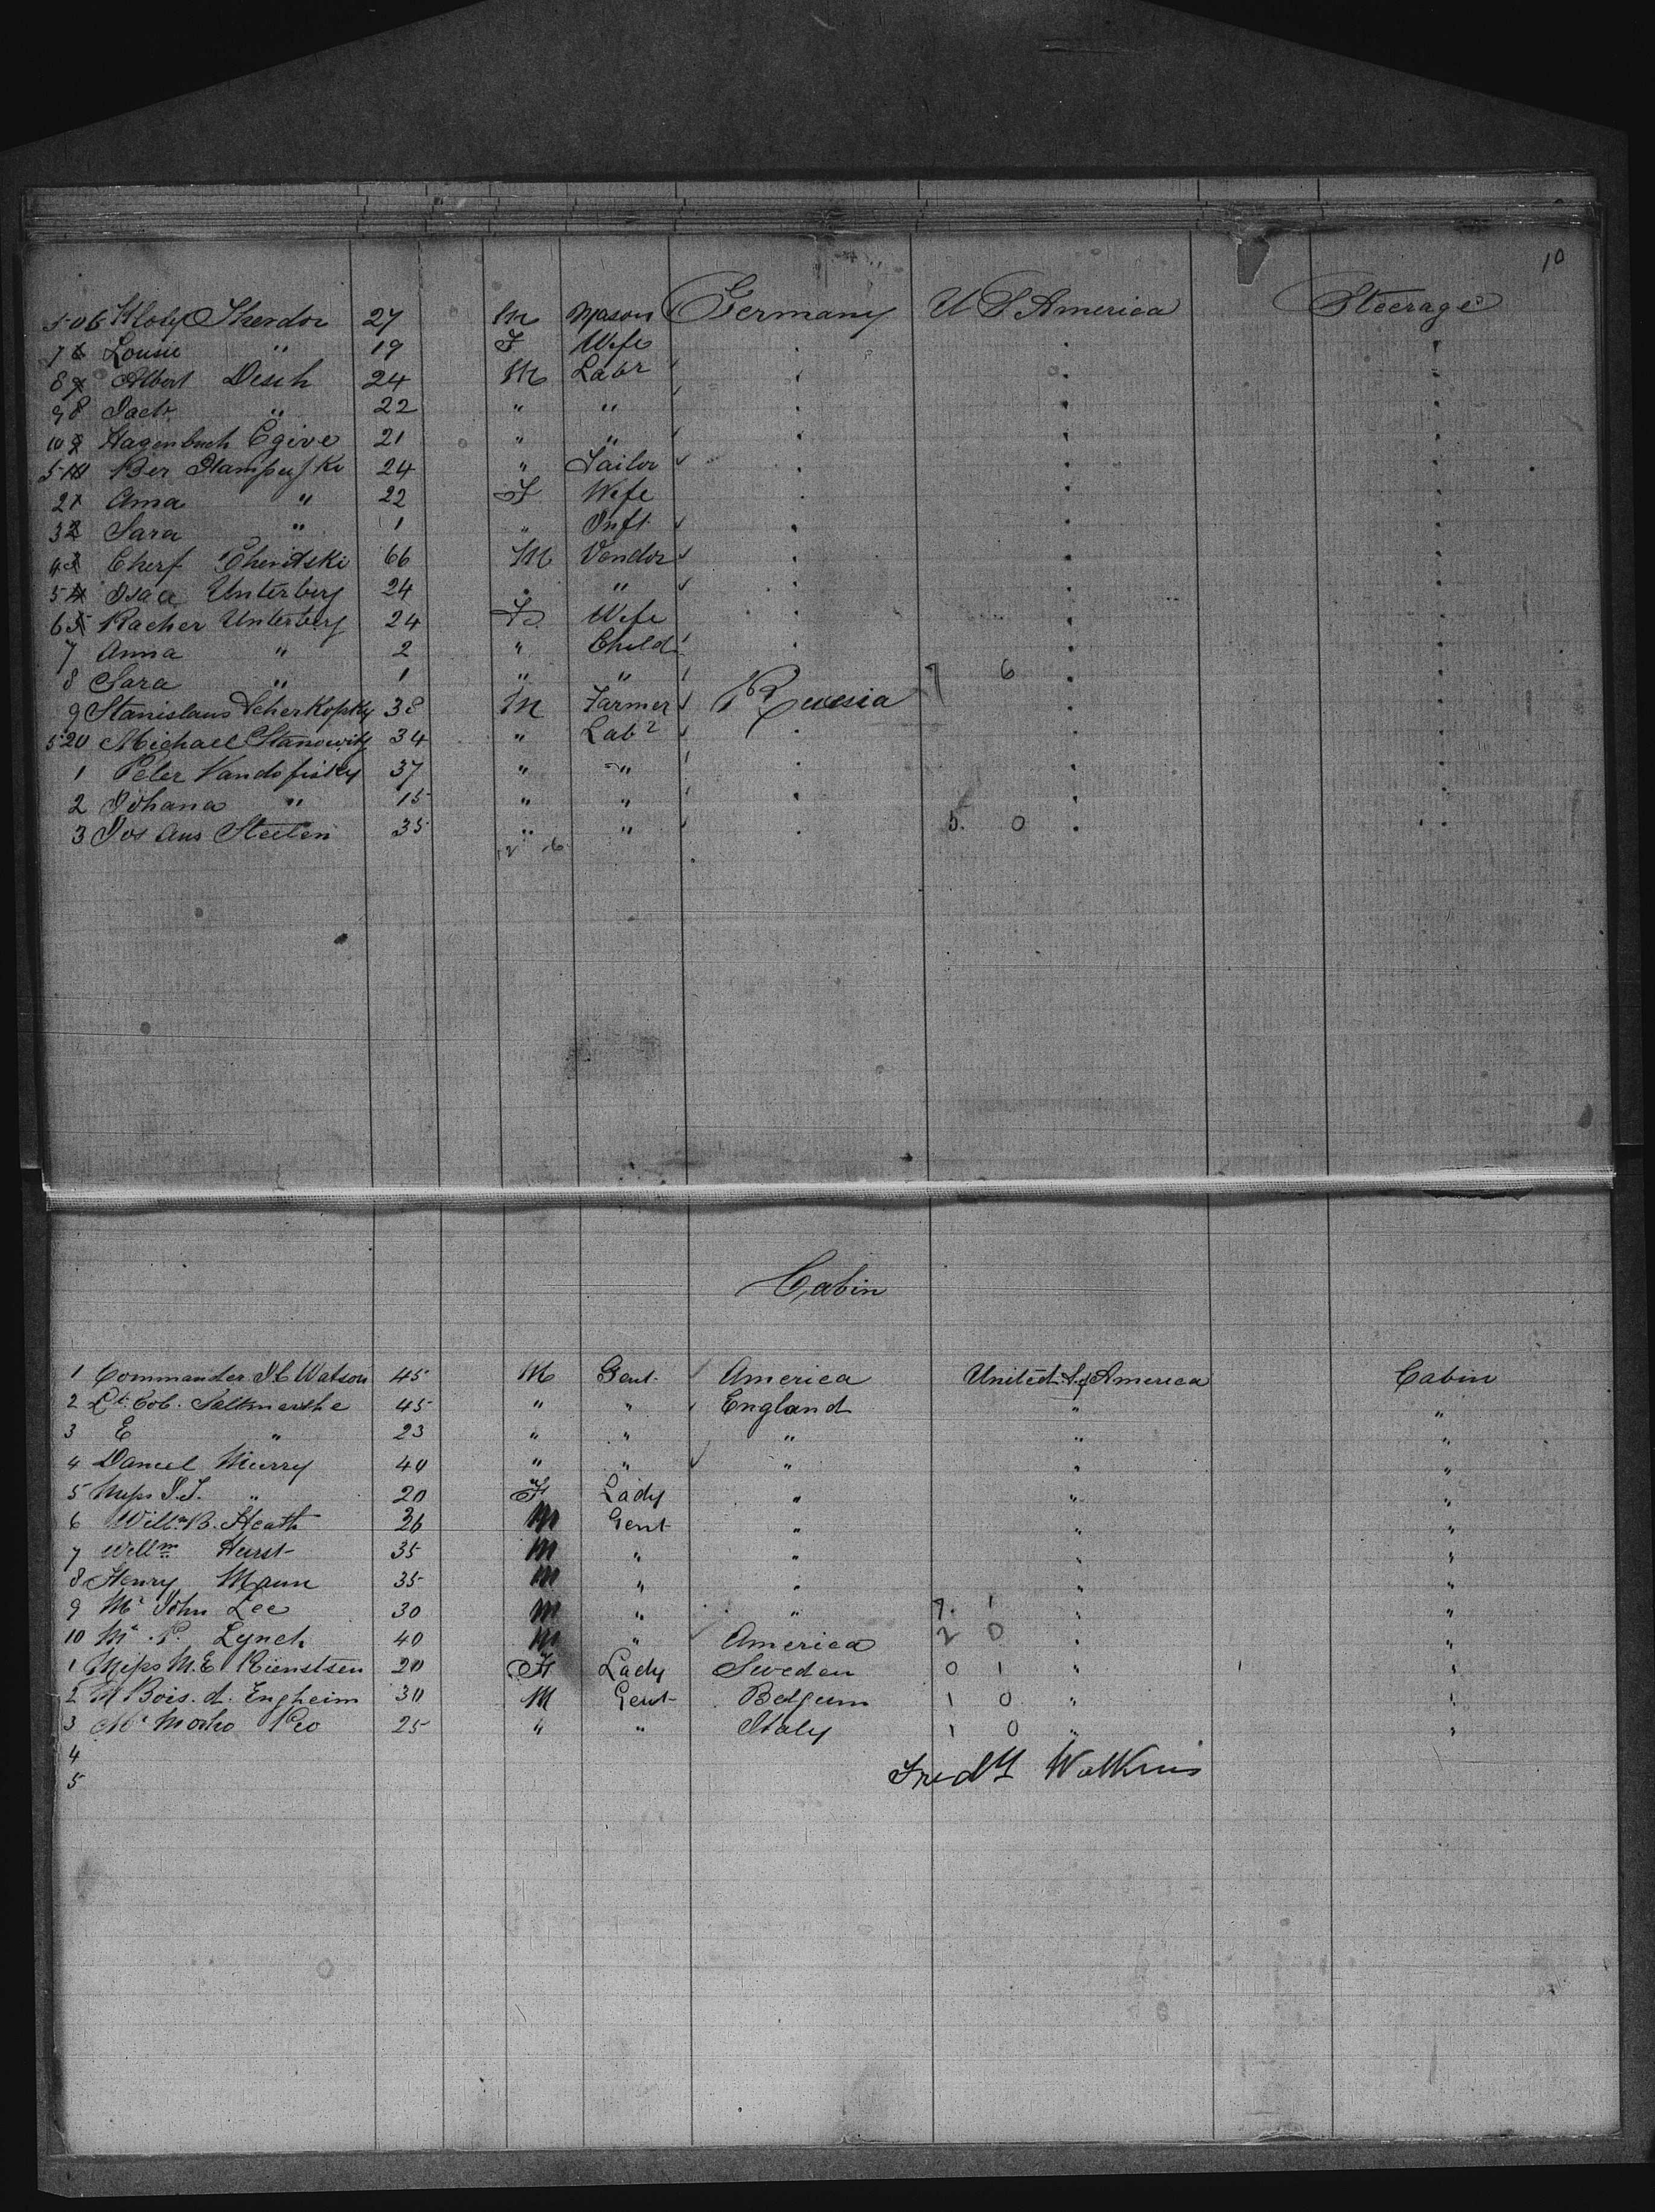 10
506 Klotz Theodor 27 M Mason Germany U S America Steerage
7 Louise " 19 F Wife
8 Albert Desch 24 M Labr
9 Jacb " 22 " "
10 Hagenbuch Egive 21 " "
511 Ber 24 " Tailor
2 Anna " 22 F Wife
3 Sara " 1 " Inft
4 Cherf 66 M Vendor
5 Isaac Unterberg 24 " "
6 Racher Unterberg 24 F Wife
7 Anna " 2 " Child
8 Sara " 1 " " 7 6
9 Stanislaus Scherkofsky 38 M Farmer Russia
520 Michael Stanowitz 34 " Labr
1 Peter Vandofisky 37 " "
2 Johana " 15 " "
3 Jos Aus Steelen 35 " " 5 0
12 6
Cabin
1 Commander J C Watson 45 M Gent America United S of America Cabin
2 Lt. Col. Saltmarshe 45 " " England " "
3 E " 23 " " " " "
4 Daniel Murry 40 " " " " "
5 Miss J.J. " 20 F Lady " " "
6 Willm B. Heath 26 M Gent " " "
7 Willm Hurst 35 M " " " "
8 Henry Mann 35 M " " " "
9 Mr John Lee 30 M " " 7 1 " "
10 Mr P. Lynch 40 M " America 2 0 " "
1 Miss M. E. Rienstsen 20 F Lady Sweden 0 1 " "
2 M Bois. d. Engheim 30 M Gent Belgum 1 0 " "
3 Mr Mosho Pco 25 " " Italy 1 0 " "
4
5
Fredk Watkins